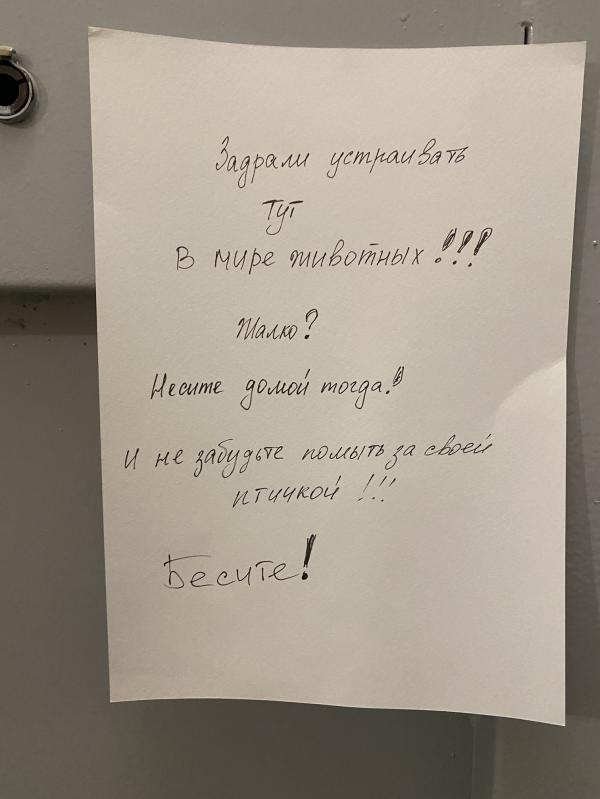 Задрали устраивать
тут
В мире животных!!!
Жалко?
Несите домой тогда!
И не забудьте помыть за своей
птичкой!!!
Бесите!